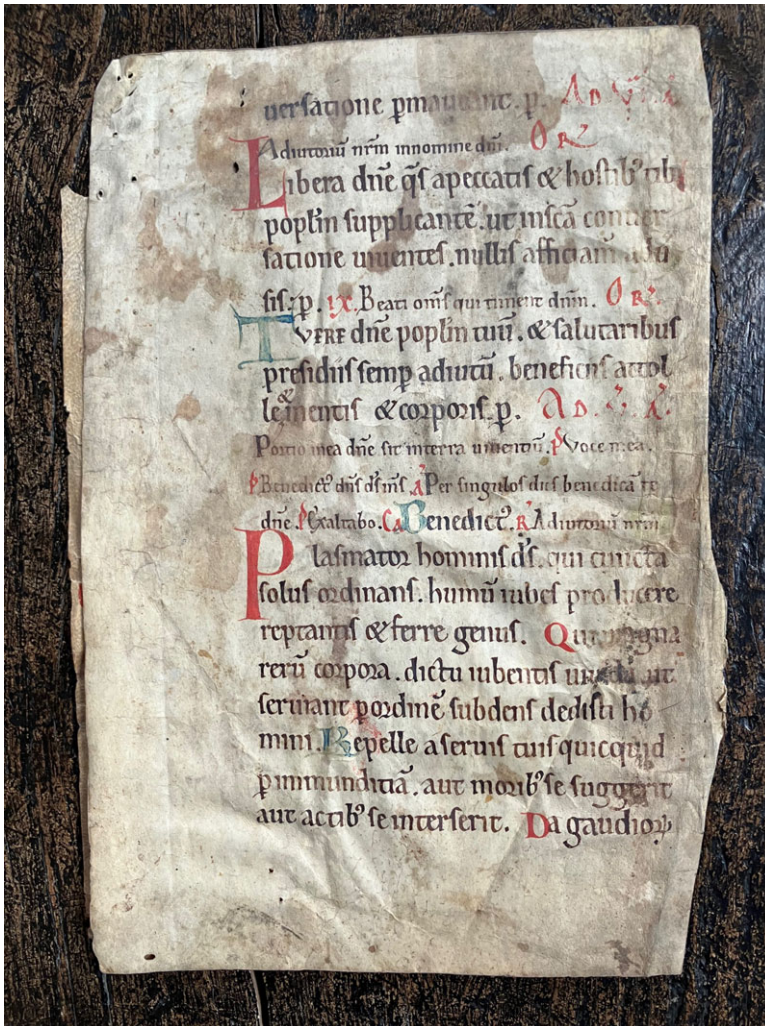 uersatione ꝑmaneant. p. AD
Adiutoriũ nr̃m innomine dñi. OR
Libera dñe q̃s apeccatis & hostibꝰ tibi
popl̃m supplicantẽ. ut insc̃a conuer
satione uiuentes. nullis afficiant
sis. p. IX. Beati om̃s qui timent dñm. OR.
TVERE dñe popl̃m tuũ. & salutaribus
presidiis semꝑ adiutũ. beneficiis attol
le & mentis & corporis. p. AD.
Portio mea dñe sit interra uiuentiũ. P Voce mea.
P Benedict᷒ dñs ds̃ m̃s A Per singulos dies benedicã te
dñe. P Exaltabo. Ca Benedict᷒. R Adiutoriũ nr̃m
Plasmator hominis d̃s. qui cuncta
solus ordinans. humũ iubes producere
reptantis & ferre genus. Qui magna
rerũ corpora. dictu iubentis uiuida ut
seruiant ꝑ ordinẽ subdens dedisti ho
mini. Repelle a seruis tuis quicquid
ꝑ immunditiã. aut moribꝰ se suggerit
aut actibꝰ se interserit. Da gaudioꝝ